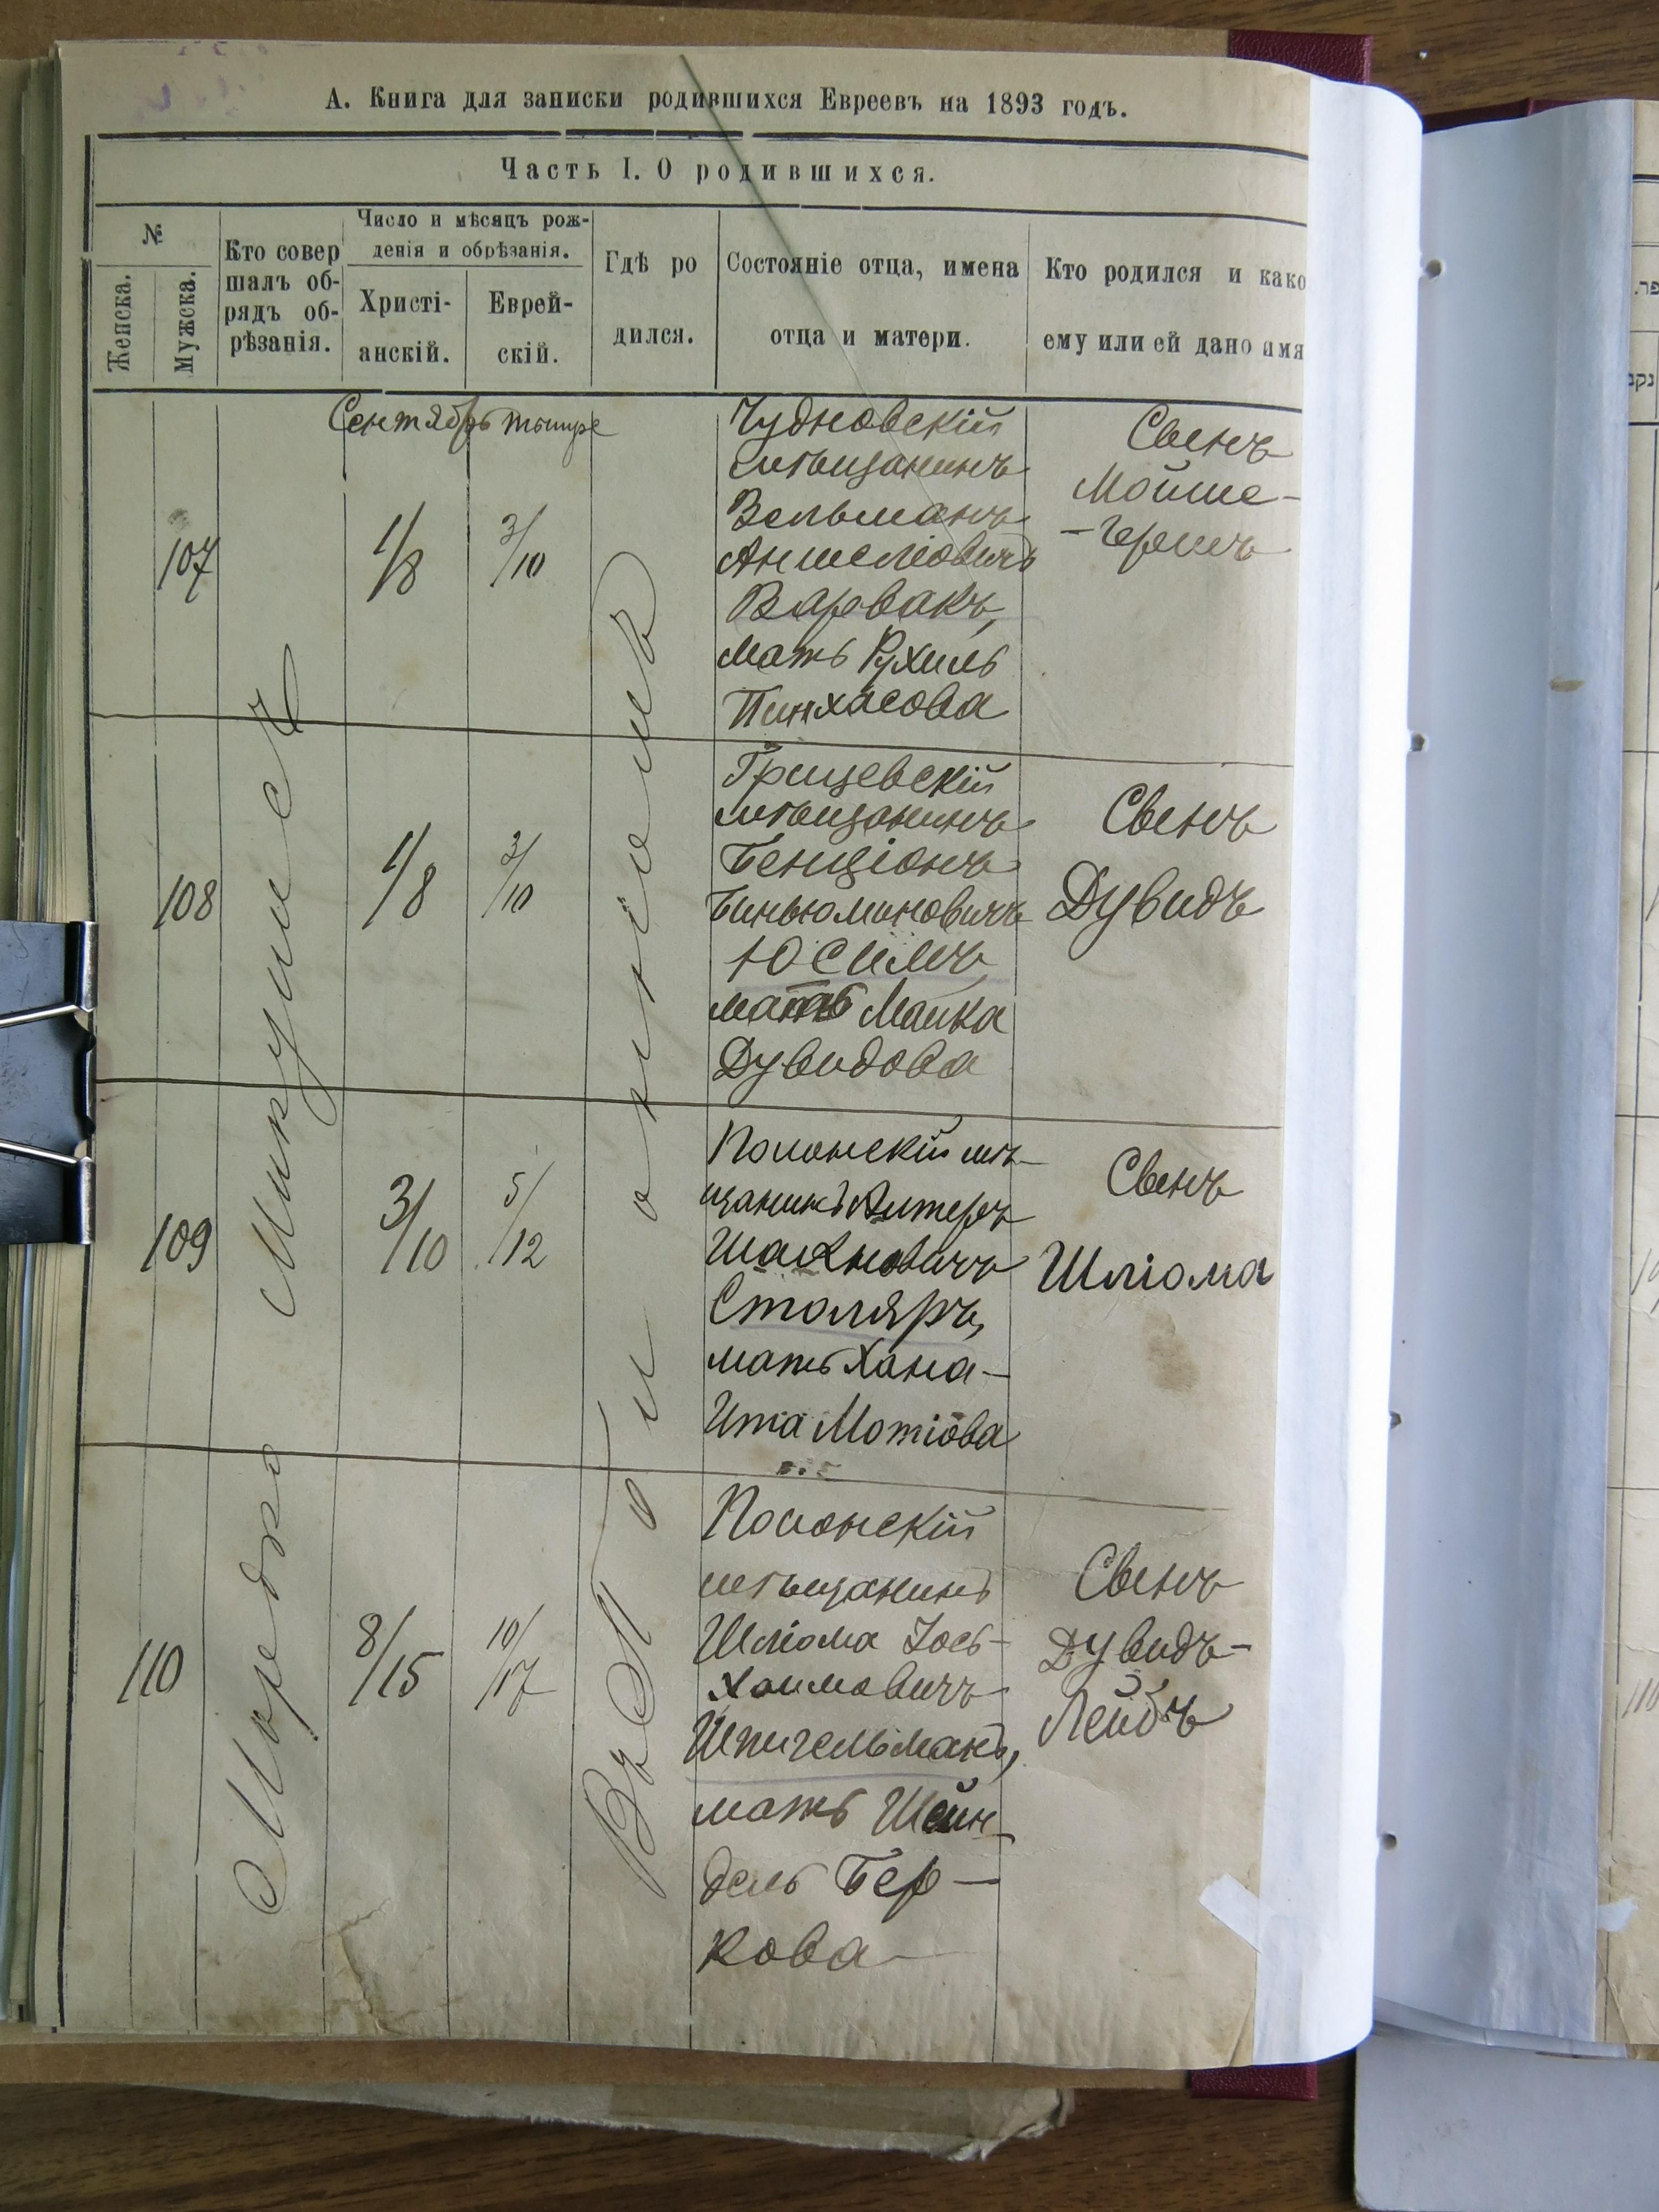 А. Книга для записки родившихся Евреевъ на 1893 годъ.
Часть I. О родившихся.
№
Женска.
Мужска.
Кто совер
шалъ об-
рядъ об-
рѣзанія.
Число и мѣсяцъ рож-
денія и обрѣзанія.
Христі-
анскій.
Еврей-
скій.
Гдѣ ро
дился.
Состояніе отца, имена
отца и матери.
Кто родился и како
ему или ей дано имя
Сентябрь тишре
107
1/8
3/10
Чудновскій
мѣщанинъ
Вельманъ
Аншелiовичъ
Варвакъ,
мать Рухиль
Пинхасова
Свенъ
Мойше-
-Гершъ
108
1/8
3/10
Грицевскій
мѣщанинъ
Бенціонъ
Биньюминовичъ
Юсимъ,
мать Малка
Дувидова
Свенъ
Дувидъ
109
3/10
5/12
Полонскій мѣ-
щанинъ Алтеръ
Шахновичъ
Столяръ,
мать Хана-
Ита Мотіова
Свенъ
Шліома
110
8/15
10/17
Полонскій
мѣщанинъ
Шліома Іось-
Хаимовичъ
Шпигельманъ,
мать Шейн-
дель Бер-
кова
Свенъ
Дувидъ-
Лейбъ
Мордко
Въ М Полонномъ